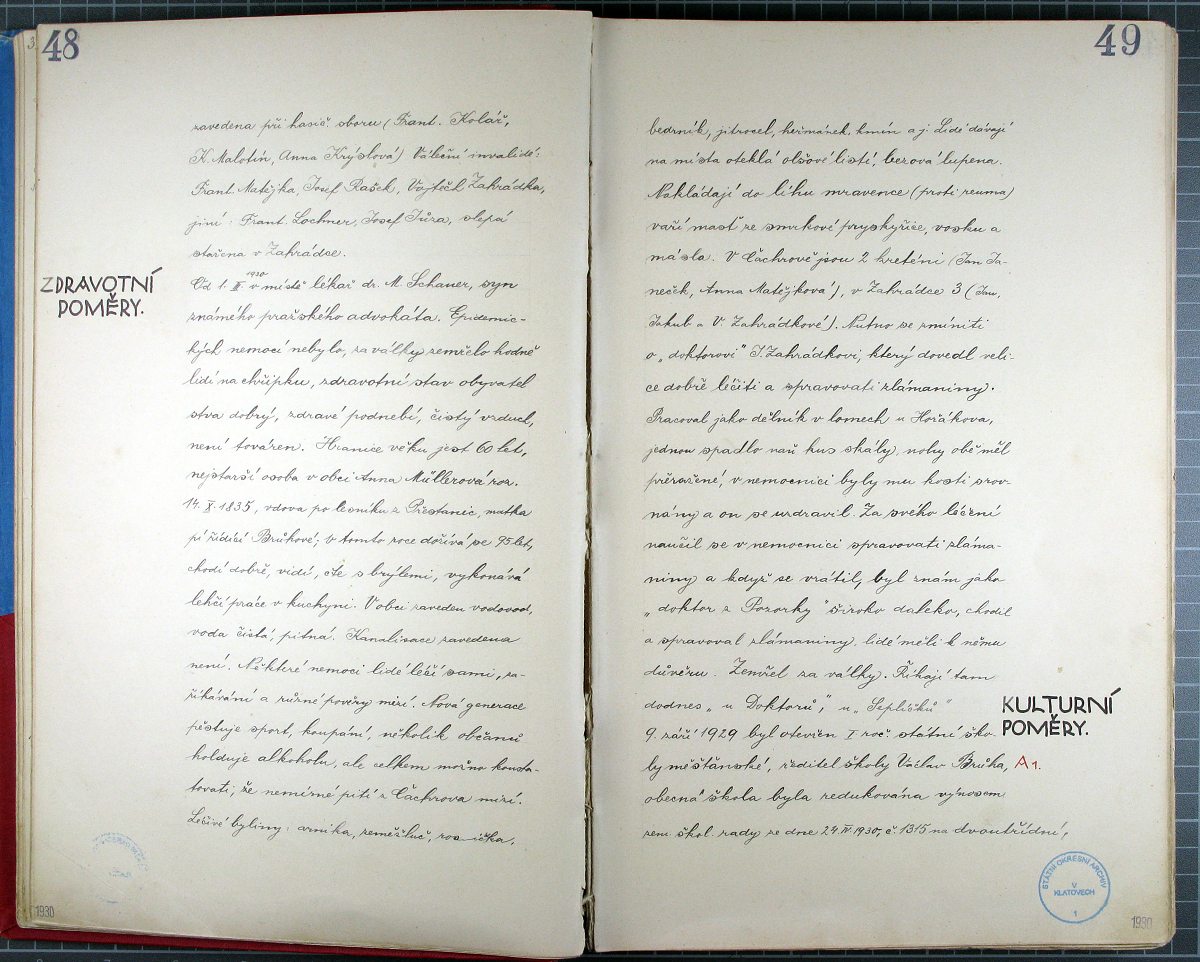 48
zavedena při hasič. sboru (Frant. Kolář,
K. Malotín, Anna Krýslová) Váleční invalidé:
Frant. Matějka, Josef Rašek, Vojtěch Zahrádka,
jiní: Frant. Lochner, Josef Tůza, slepá
stařena v Zahrádce.
ZDRAVOTNÍ
POMĚRY.
Od 1. II. 1930 v místě lékař dr. M. Schauer, syn
známého pražského advokáta. Epidemic-
kých nemocí nebylo, za války zemřelo hodně
lidí na chřipku, zdravotní stav obyvatel
stva dobrý, zdravé podnebí, čistý vzduch,
není továren. Hranice věku jest 60 let,
nejstarší osoba v obci Anna Müllerová roz.
14. X. 1835, vdova po lesníku z Přestanic, matka
pí řídící Brůhové; v tomto roce dožívá se 95 let,
chodí dobře, vidí, čte s brýlemi, vykonává
lehčí práce v kuchyni. V obci zaveden vodovod,
voda čistá, pitná. Kanalisace zavedena
není. Některé nemoci lidé léčí sami, za-
říkávání a různé pověry mizí. Nová generace
pěstuje sport, koupání, několik občanů
holduje alkoholu, ale celkem možno konsta-
tovati, že nemírné pití z Čachrova mizí.
Léčivé byliny: arnika, zeměžluč, rosička,
1930
49
bedrník, jitrocel, heřmánek, kmín a j. Lidé dávají
na místa oteklá olšové listí, bezová lupena.
Nakládají do lihu mravence (proti reuma)
vaří mast ze smrkové pryskyřice, vosku a
másla. V Čachrově jsou 2 hreténi (Jan Ja-
neček, Anna Matějková), v Zahrádce 3 (Jan,
Jakub a V. Zahrádkové). Nutno se zmíniti
o „doktorovi" J. Zahrádkovi, který dovedl veli-
ce dobře léčiti a spravovati zlámaniny.
Pracoval jako dělník v lomech u Hořákova,
jednou spadlo naň kus skály, nohy obě měl
přeražené, v nemocnici byly mu kosti srov-
nány a on se uzdravil. Za svého léčení
naučil se v nemocnici spravovati zláma-
niny a když se vrátil, byl znám jako
„doktor z Pozorky" široko daleko, chodil
a spravoval zlámaniny. lidé měli k němu
důvěru. Zemřel za války. Říkají tam
dodnes „u Doktorů", u „Sepličků"
KULTURNÍ
POMĚRY.
9. září 1929 byl otevřen I roč. státní ško-
ly měšťanské, ředitel školy Václav Brůha, A1.
obecná škola byla redukována výnosem
zem. škol. rady ze dne 24. IV. 1930, č. 1315 na dvoutřídní,
STÁTNÍ OKRESNÍ ARCHIV
V
KLATOVECH
1
1930